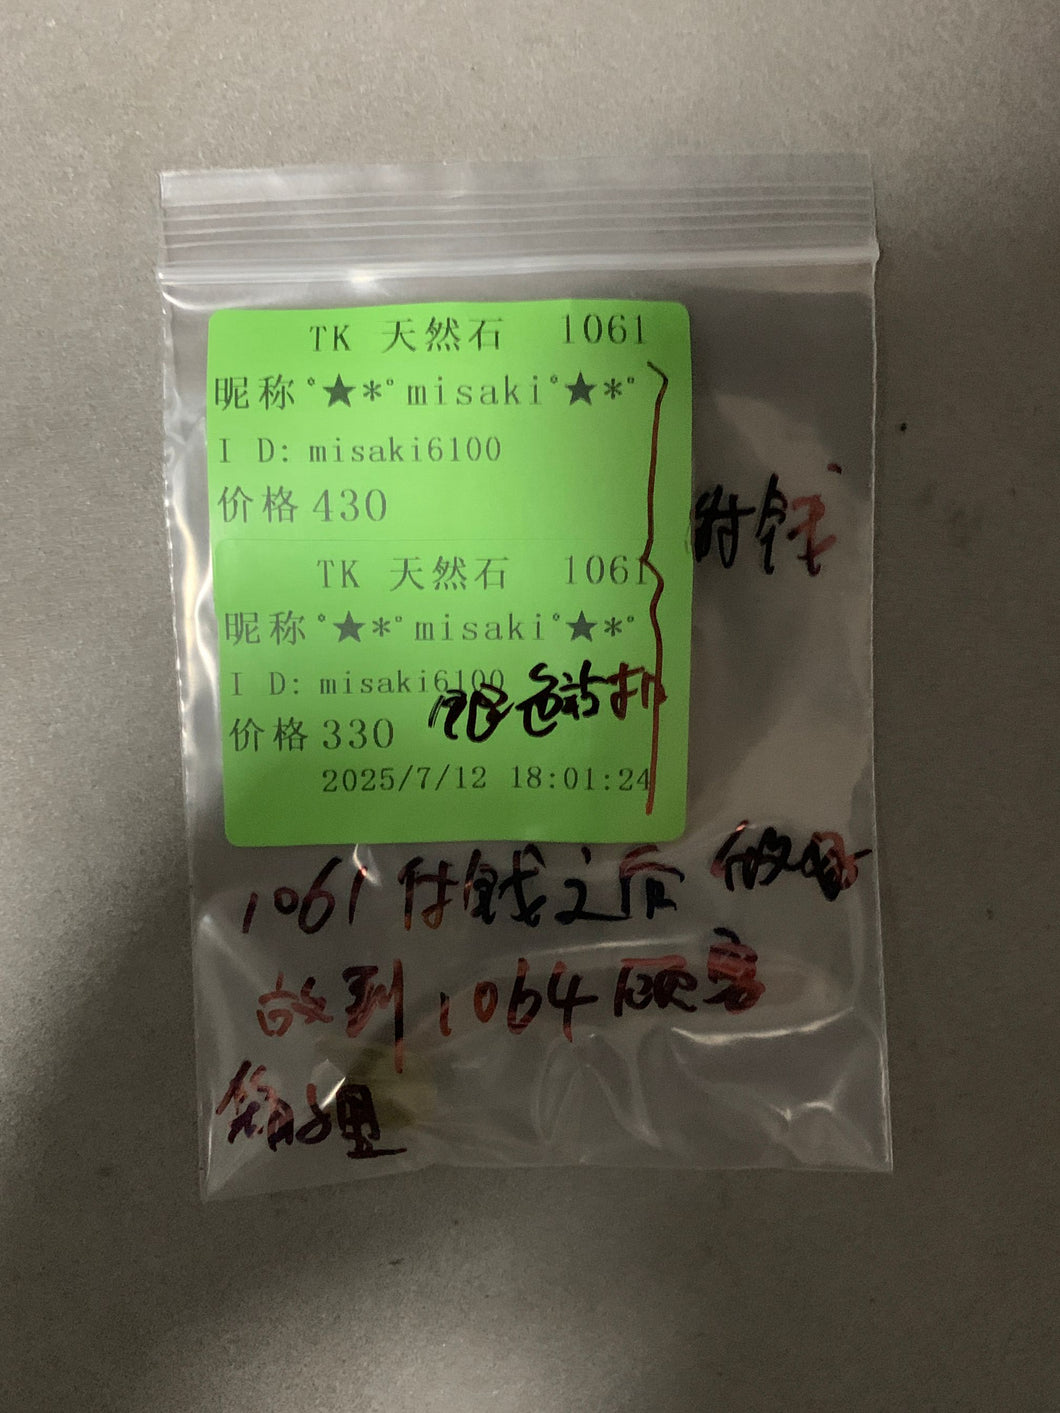 TK 天然石 1061
昵称°★*°misaki°★*°
I D: misaki6100
价格 430
付钱
TK 天然石 1061
昵称°★*°misaki°★*°
I D: misaki6100
价格 330
2025/7/12 18:01:24
1061 付钱之后
放到 1064 顾客
箱子里